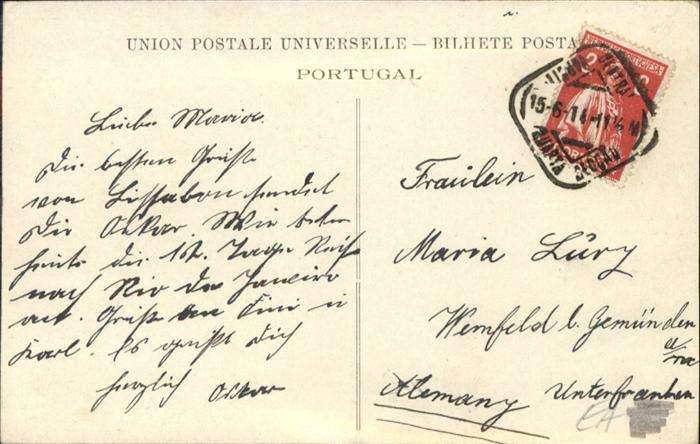 UNION POSTALE UNIVERSELLE — BILHETE POSTA
PORTUGAL
15-6-14-11½M
Liebe Maria.
Die besten Grüße
von Lissabon sendet
Dir Oskar. Wir treten
heute die 12. Tage Reise
nach Rio de Janeiro
an. Grüße an Fini u
Karl. Es grüßt Dich
herzlich Oskar
Fräulein
Maria Lüry
Wernfeld b. Gemünden
a/m
Alemany Unterfranken